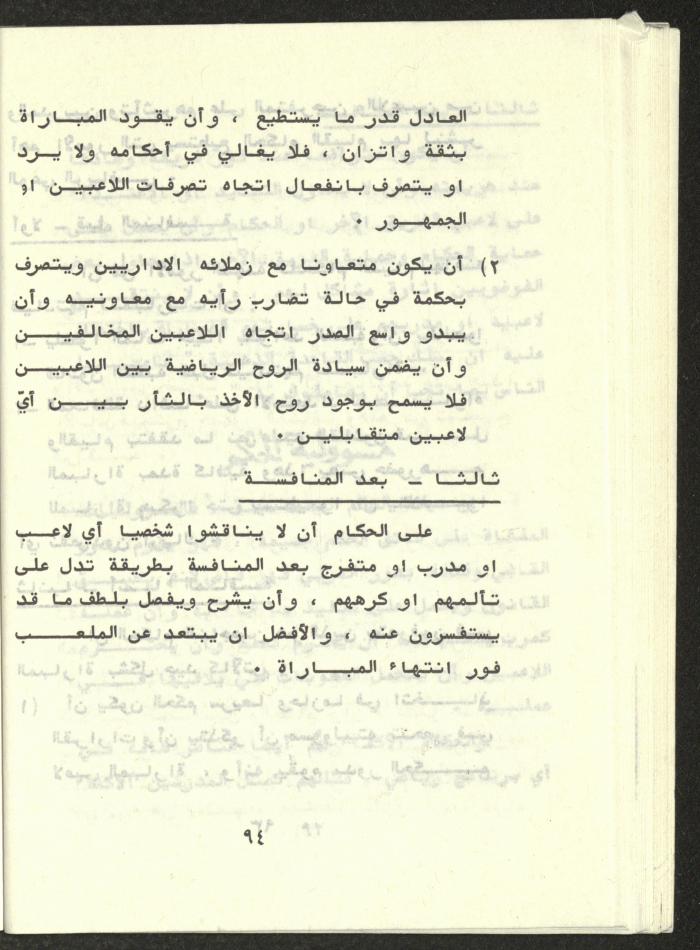 العادل قدر ما يستطيع ، وأن يقود المباراة
بثقة واتزان ، فلا يغالي في أحكامه ولا يرد
او يتصرف بانفعال اتجاه تصرفات اللاعبين او
الجمهور .
٢) أن يكون متعاونا مع زملائه الاداريين ويتصرف
بحكمة في حالة تضارب رأيه مع معاونيه وأن
يبدو واسع الصدر اتجاه اللاعبين المخالفين
وأن يضمن سيادة الروح الرياضية بين اللاعبين
فلا يسمح بوجود روح الأخذ بالثأر بين أيّ
لاعبين متقابلين .
ثالثا ـ بعد المنافسة
على الحكام أن لا يناقشوا شخصيا أي لاعب
او مدرب او متفرج بعد المنافسة بطريقة تدل على
تألمهم او كرههم ، وأن يشرح ويفصل بلطف ما قد
يستفسرون عنه ، والأفضل ان يبتعد عن الملعب
فور انتهاء المباراة .
٩٤